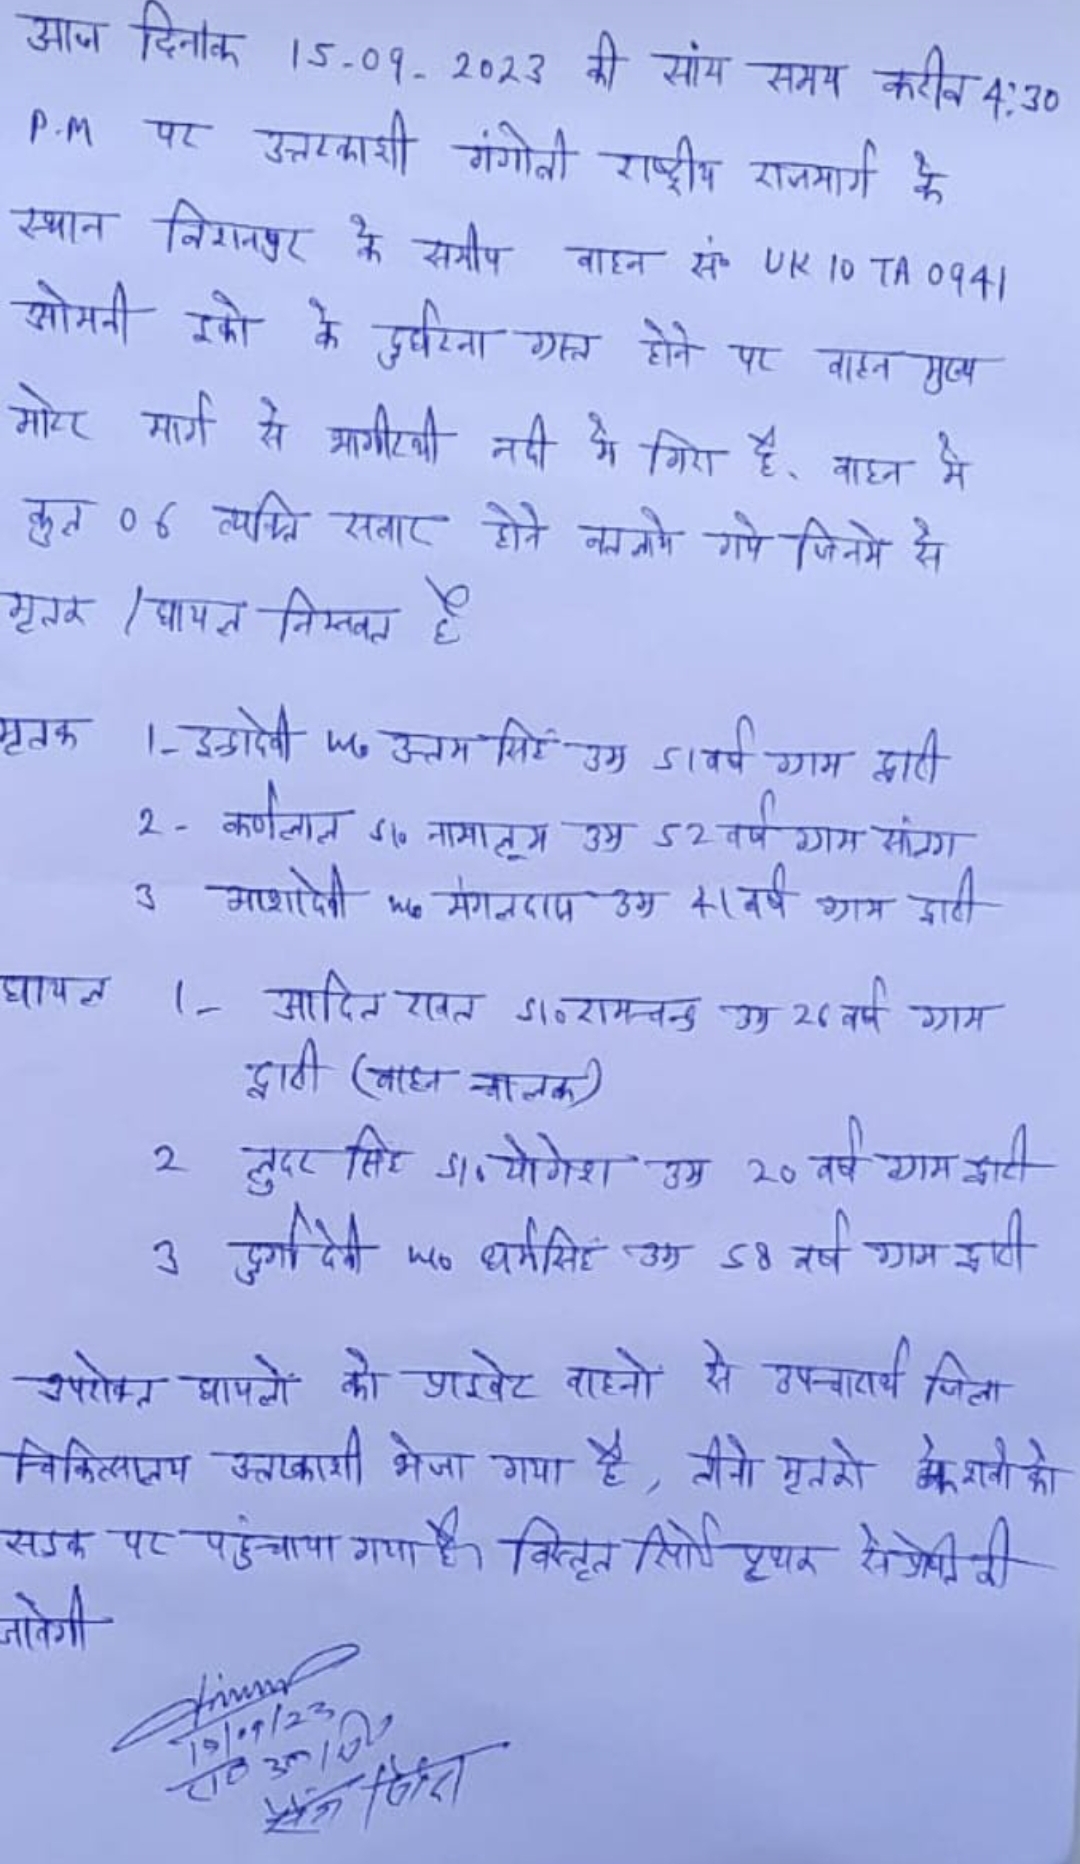 आज दिनांक 15-09-2023 की सांय समय करीब 4:30
P.M पर उत्तरकाशी गंगोत्री राष्ट्रीय राजमार्ग के
स्थान विशनपुर के समीप वाहन सं॰ UK 10 TA 0941
ओमनी इको के दुर्घटना ग्रस्त होने पर वाहन मुख्य
मोटर मार्ग से भागीरथी नदी मे गिरा है. वाहन मे
कुल 06 व्यक्ति सवार होने बतलाये गये जिनमे से
मृतक / घायल निम्नवत है
मृतक 1- इन्द्रादेवी w/o उत्तम सिंह उम्र 51 वर्ष ग्राम द्वारी
2- कर्णलाल S/o नामालूम उम्र 52 वर्ष ग्राम
3 आशादेवी w/o मंगलदास उम्र 41 वर्ष ग्राम द्वारी
घायल 1- आदित रावत S/o रामचन्द्र उम्र 26 वर्ष ग्राम
द्वारी (वाहन चालक)
2 लुदर सिंह S/o योगेश उम्र 20 वर्ष ग्राम द्वारी
3 दुर्गा देवी w/o धर्मसिंह उम्र 58 वर्ष ग्राम द्वारी
उपरोक्त घायलों को प्राइवेट वाहनों से उपचारार्थ जिला
चिकित्सालय उत्तरकाशी भेजा गया है, तीनो मृतको के शवो को
सडक पर पहुंचाया गया है। विस्तृत रिपोर्ट पृथक से प्रेषित की
जावेगी